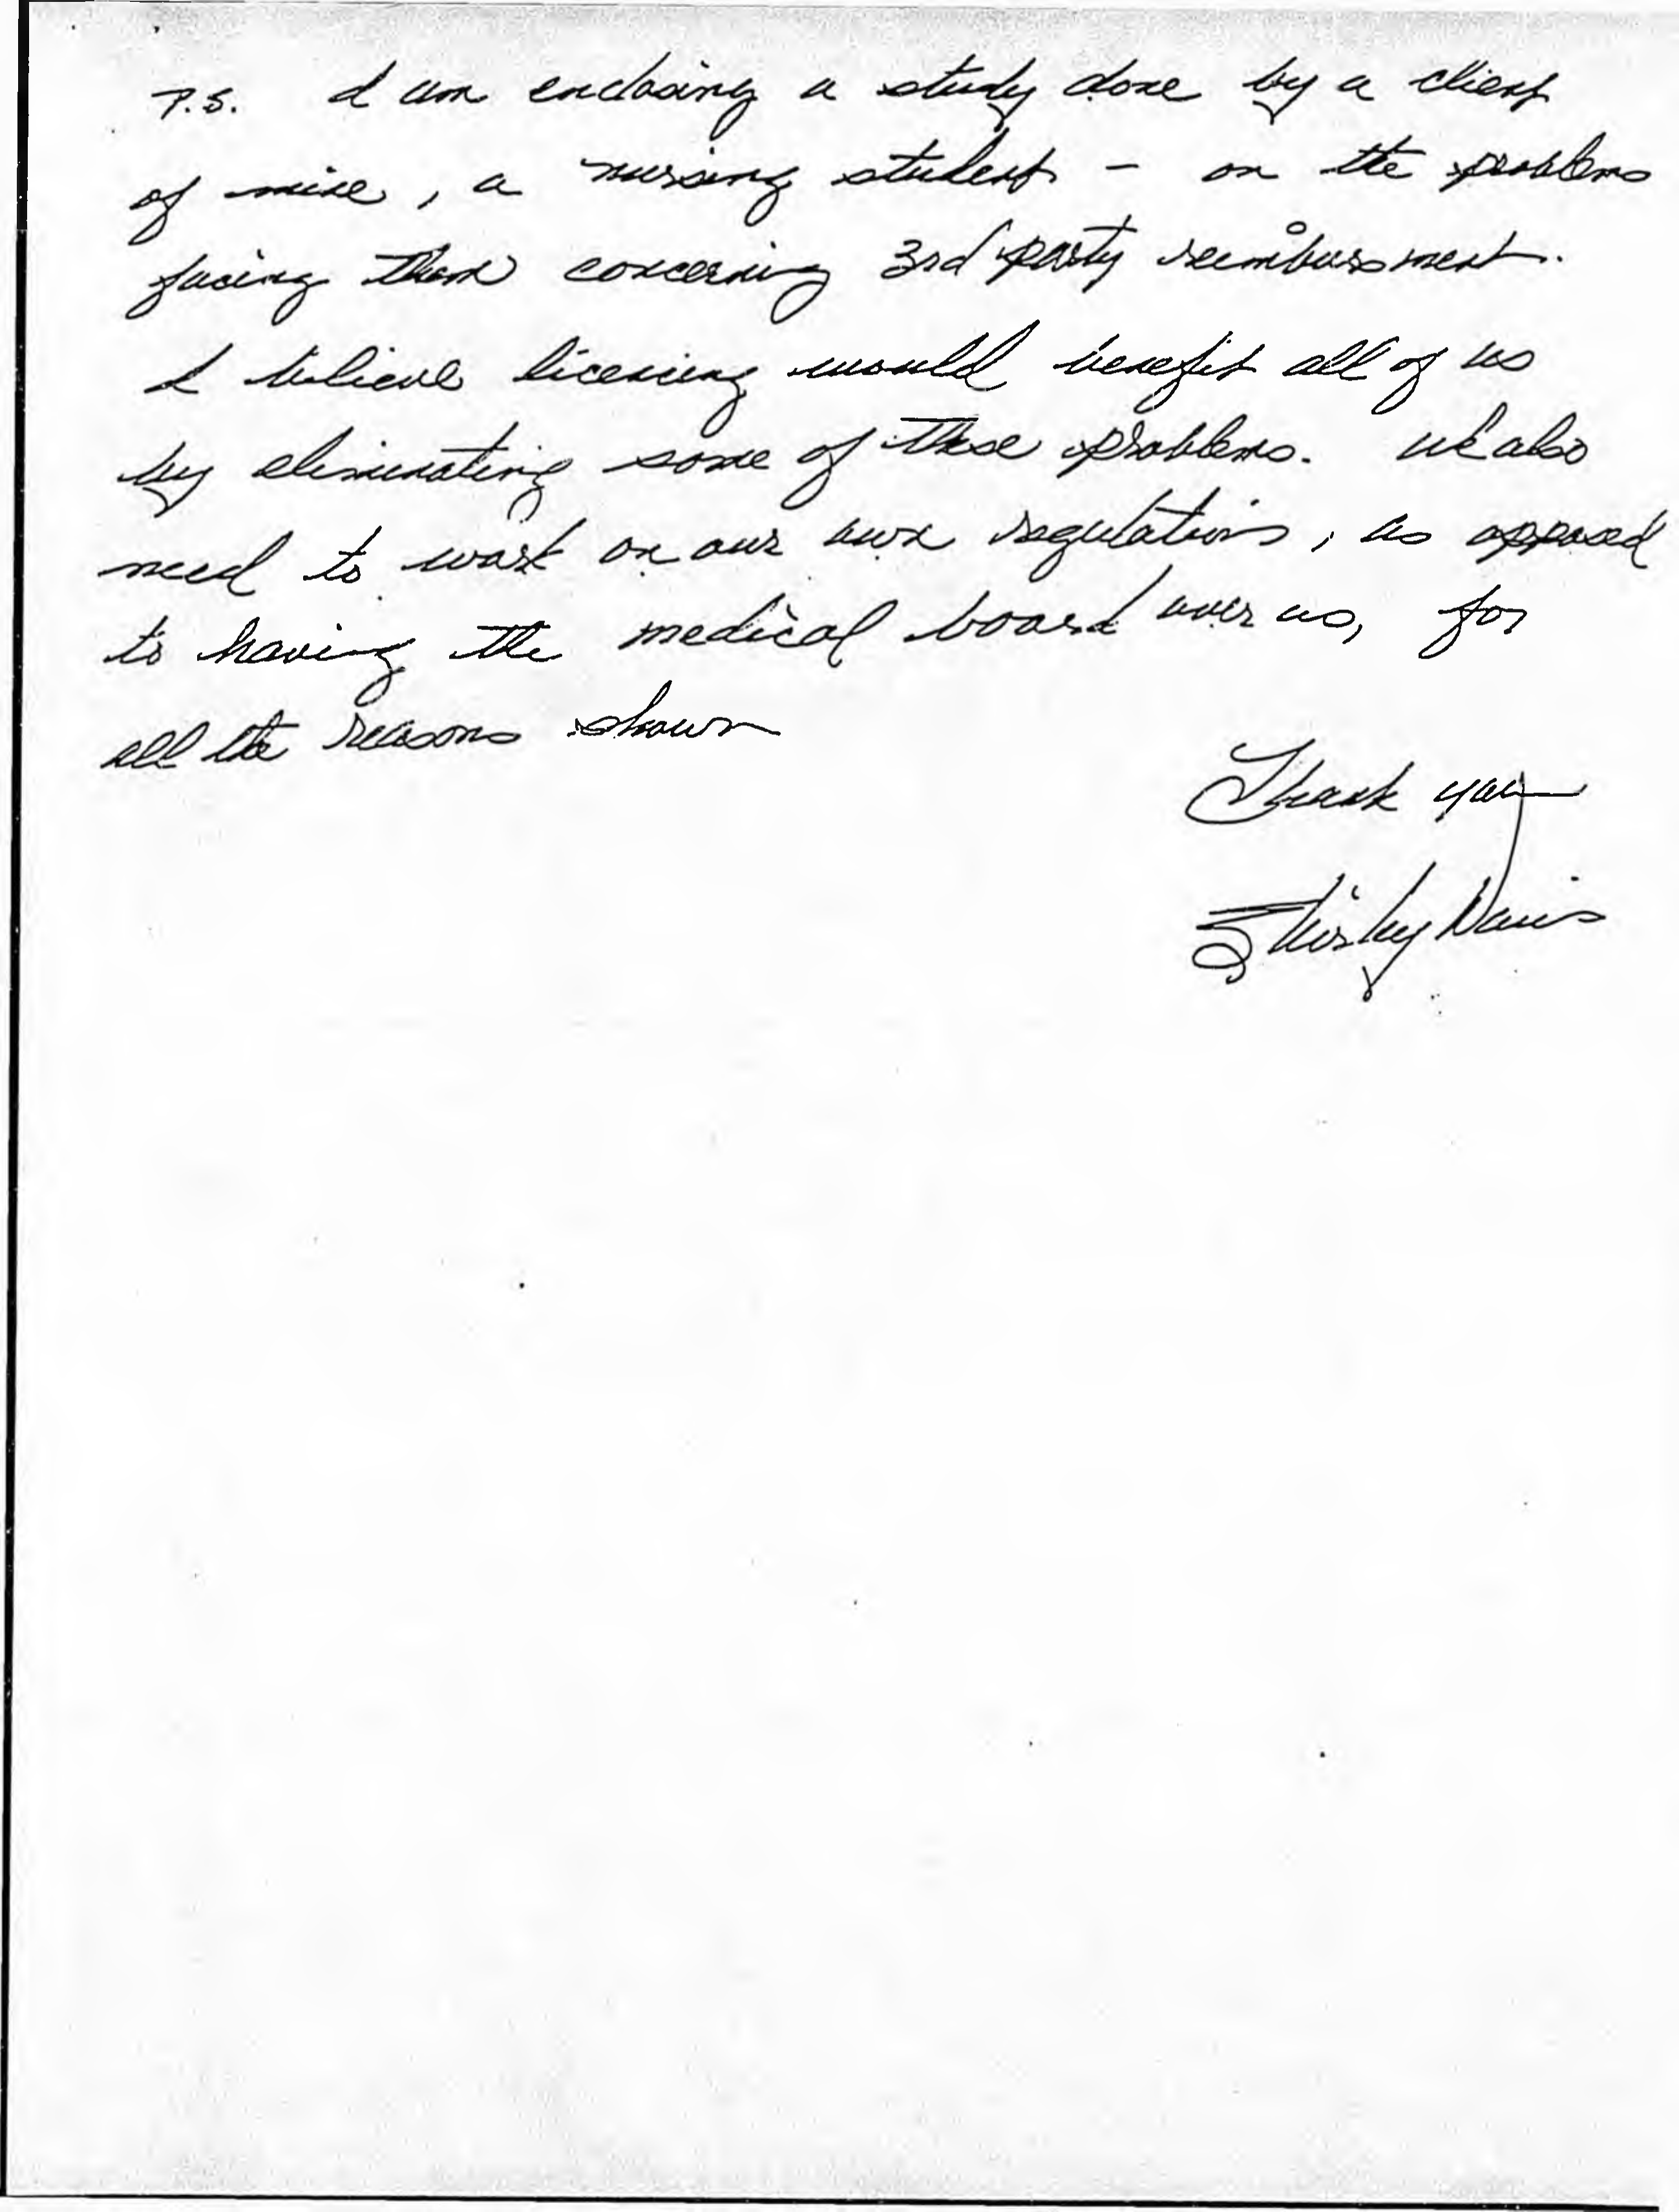 P.S. I am enclosing a study done by a client
of mine, a nursing student - on the problems
facing them concerning 3rd party reimbursment.
I believe licensing would benefit all of us
by eliminating some of these problems. We also
need to work on our own regulations, as opposed
to having the medical board over us, for
all the reasons shown
Thank you
Shirley Davis